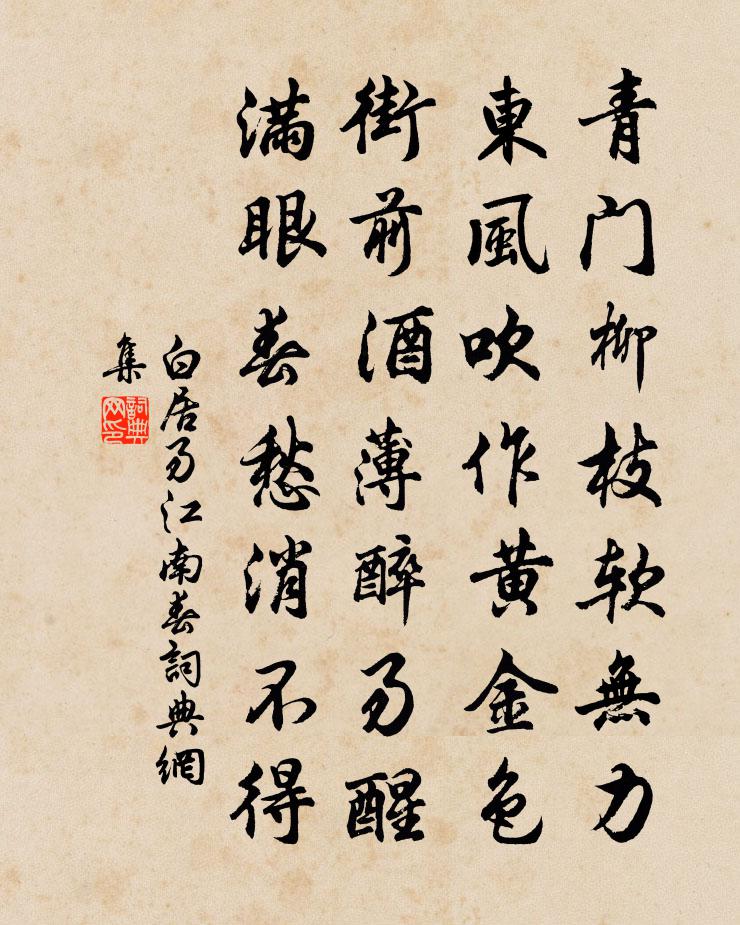 青门柳枝软無力
東風吹作黄金色
街前酒薄醉易醒
滿眼春愁消不得
白居易江南春詞典網
集
詞典
网印